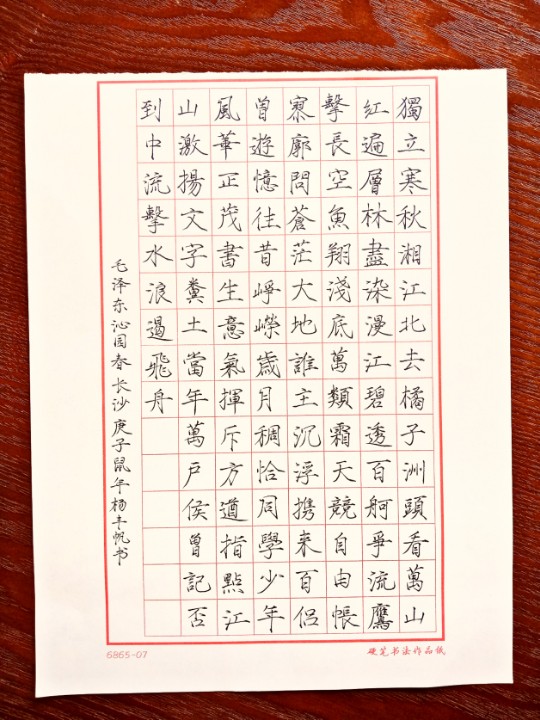 獨立寒秋湘江北去橘子洲頭看萬山
紅遍層林盡染漫江碧透百舸爭流鷹
擊長空魚翔淺底萬類霜天競自由悵
寥廓問蒼茫大地誰主沉浮携來百侣
曾遊憶往昔崢嶸歲月稠恰同學少年
風華正茂書生意氣揮斥方遒指點江
山激揚文字糞土當年萬戶侯曾記否
到中流擊水浪遏飛舟
毛泽东沁园春长沙庚子鼠年杨帆书
6865-07
硬笔书法作品纸